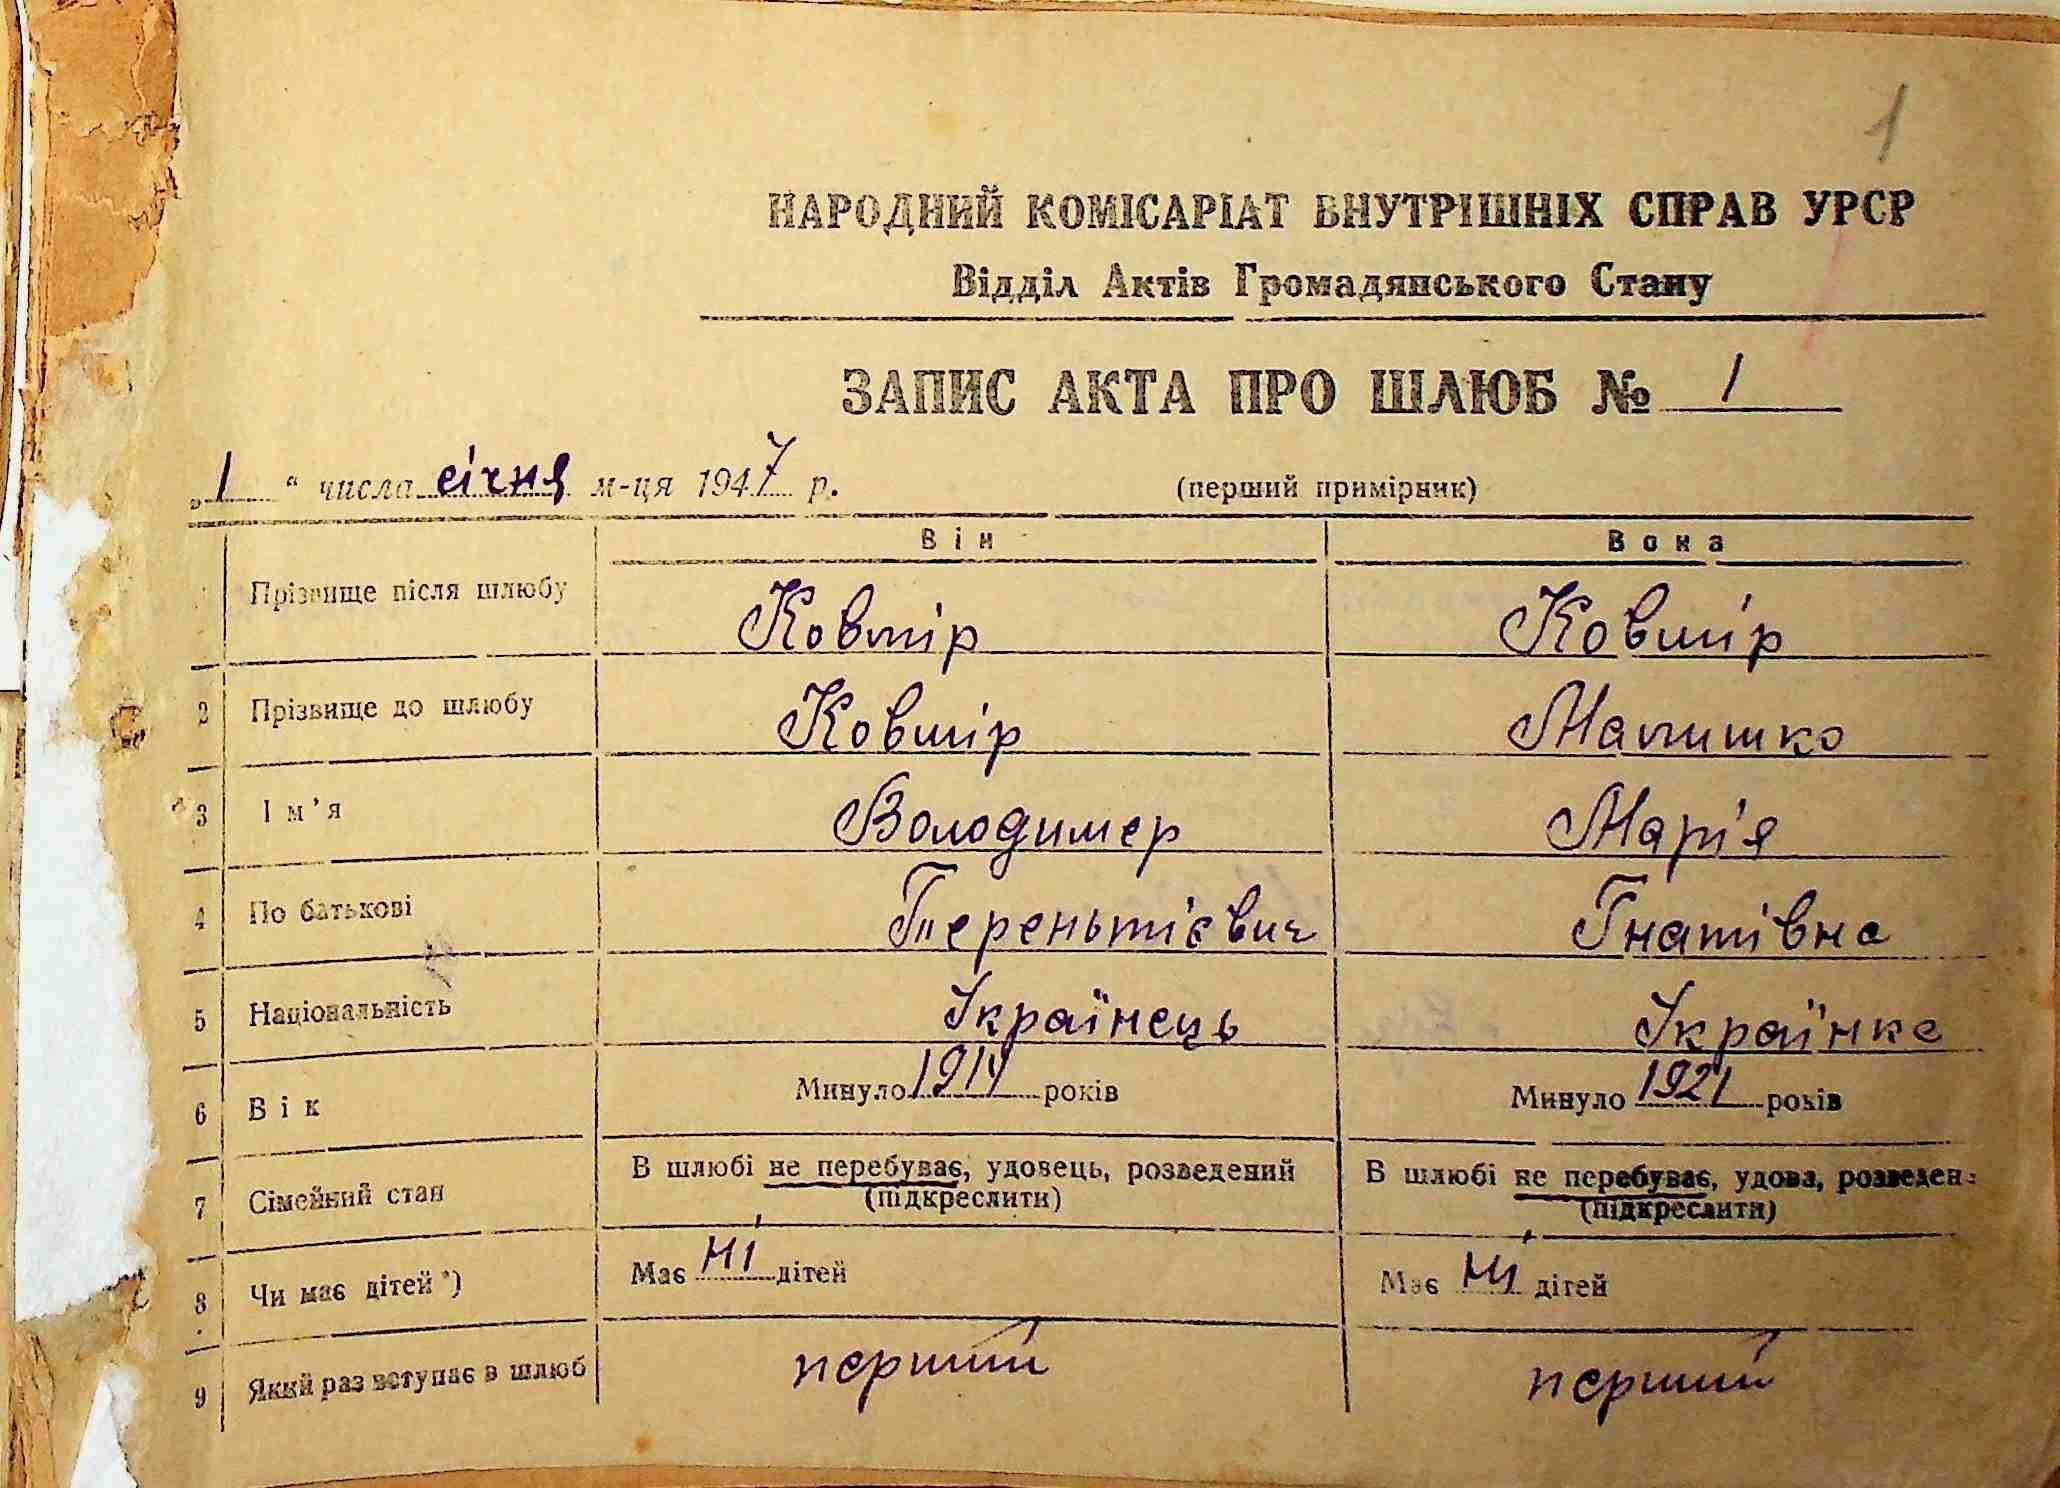 1
НАРОДНИЙ КОМІСАРІАТ ВНУТРІШНІХ СПРАВ УРСР
Відділ Актів Громадянського Стану
ЗАПИС АКТА ПРО ШЛЮБ № 1
„1“ числа січня м-ця 1947 р. (перший примірник)
Він Вона
Прізвище після шлюбу Ковмір Ковмір
2 Прізвище до шлюбу Ковмір Малишко
3 Ім'я Володимер Марія
4 По батькові Терентієвич Гнатівна
5 Національність Українець Українка
6 Вік Минуло 1914 років Минуло 1921 років
7 Сімейний стан В шлюбі не перебуває, удовець, розведений (підкреслити) В шлюбі не перебуває, удова, розведен (підкреслити)
8 Чи має дітей*) Має ні дітей Має ні дітей
9 Який раз вступає в шлюб перший перший